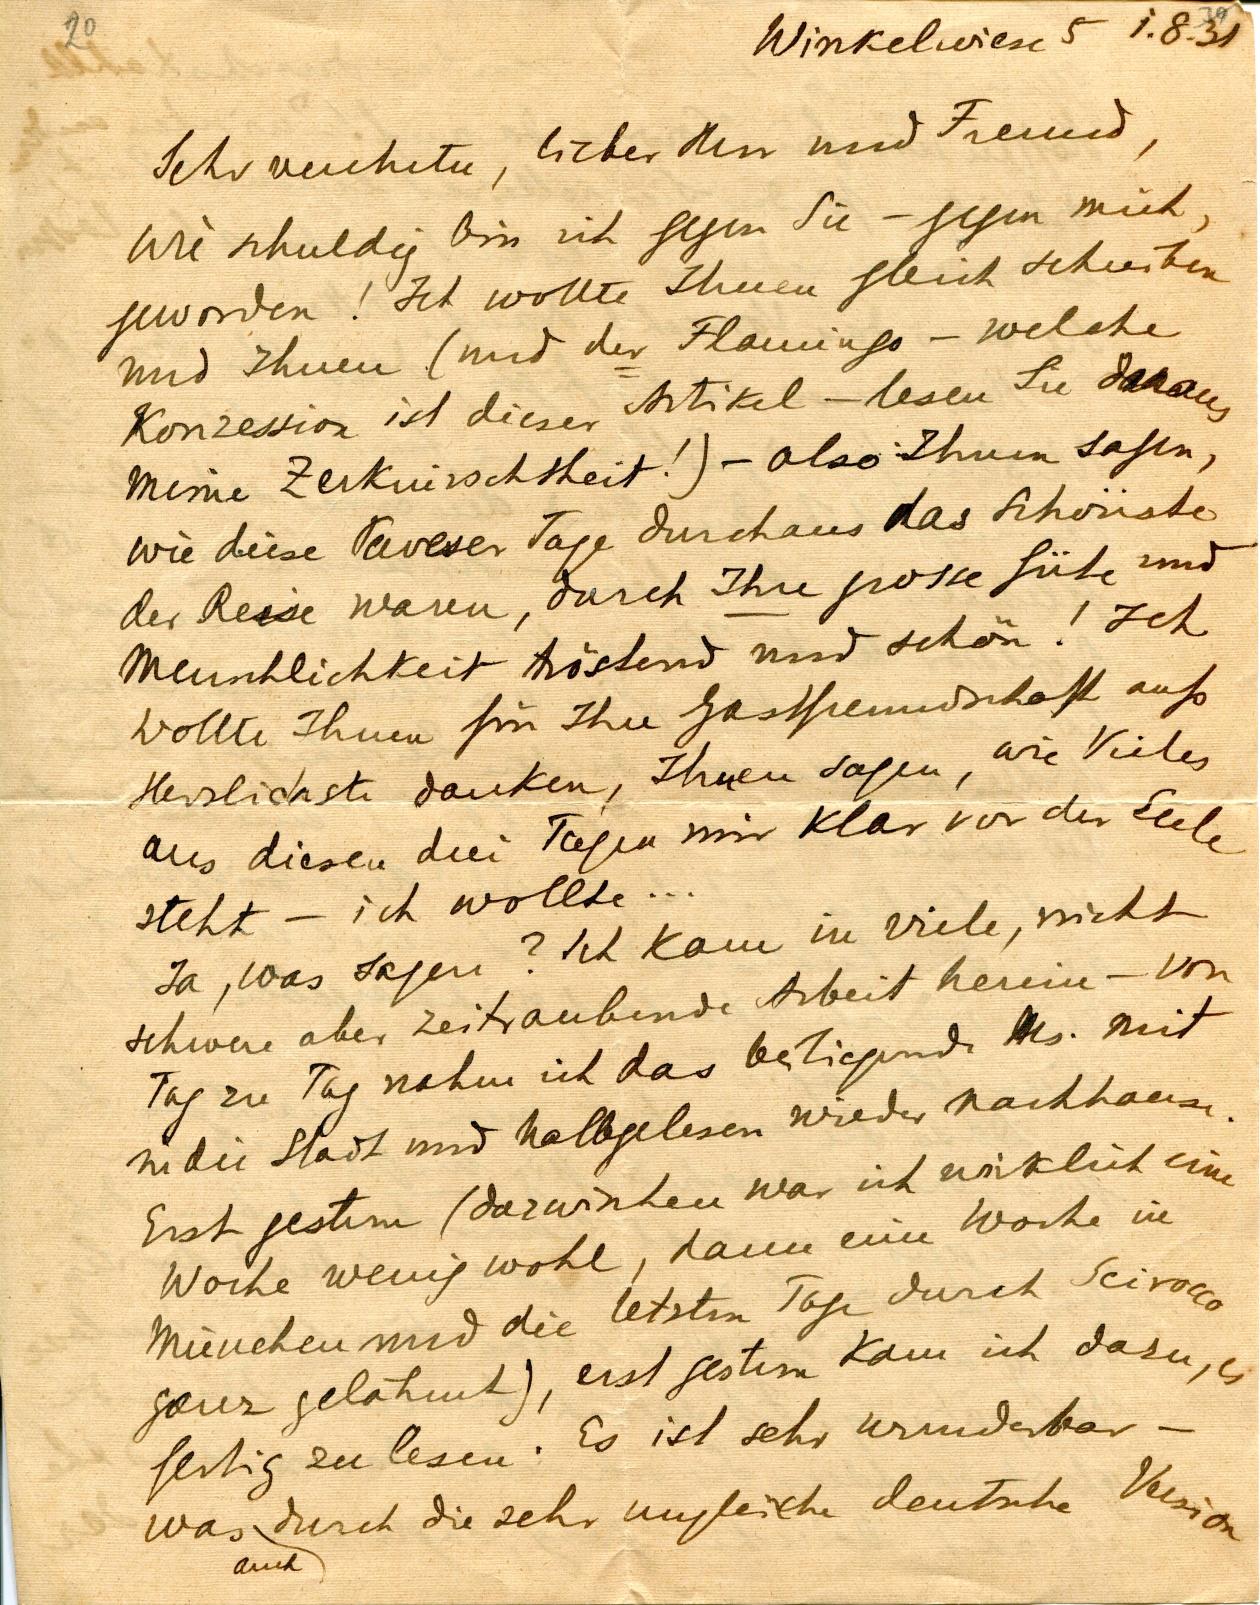 20
39
Winkelwiese 5 1.8.31
Sehr verehrter, lieber Herr und Freund,
wie schuldig bin ich gegen Sie – gegen mich,
geworden! Ich wollte Ihnen gleich schreiben
und Ihnen (und der Flamingo – welche
Konzession ist dieser Artikel – lesen Sie daraus
meine Zerknirschtheit!) – also Ihnen sagen,
wie diese Tage durchaus das Schönste
der Reise waren, durch Ihre grosse Güte und
Menschlichkeit tröstend und schön! Ich
wollte Ihnen für Ihre Gastfreundschaft aufs
Herzlichste danken, Ihnen sagen, wie Vieles
aus diesen drei Tagen mir klar vor der Seele
steht – ich wollte...
Ja, was sagen? Ich kam in viele, nicht
schwere aber zeitraubende Arbeit herein – von
Tag zu Tag nahm ich das beiliegende Ms. mit
in die Stadt und halbgelesen wieder nachhause.
Erst gestern (dazwischen war ich wirklich eine
Woche wenig wohl, dann eine Woche in
München und die letzten Tage durch Scirocco
ganz gelähmt), erst gestern kam ich dazu, es
fertig zu lesen. Es ist sehr wunderbar –
was durch die sehr ungleiche deutsche Version
auch